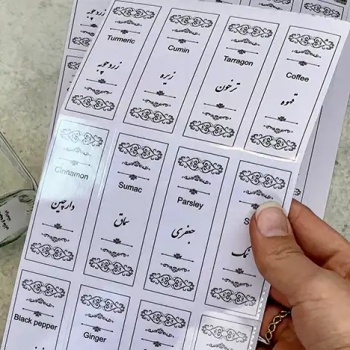 Turmeric
زردچوبه
Cumin
زیره
Tarragon
ترخون
Coffee
قهوه
Cinnamon
دارچین
Sumac
سماق
Parsley
جعفری
نمک
Black pepper
Ginger